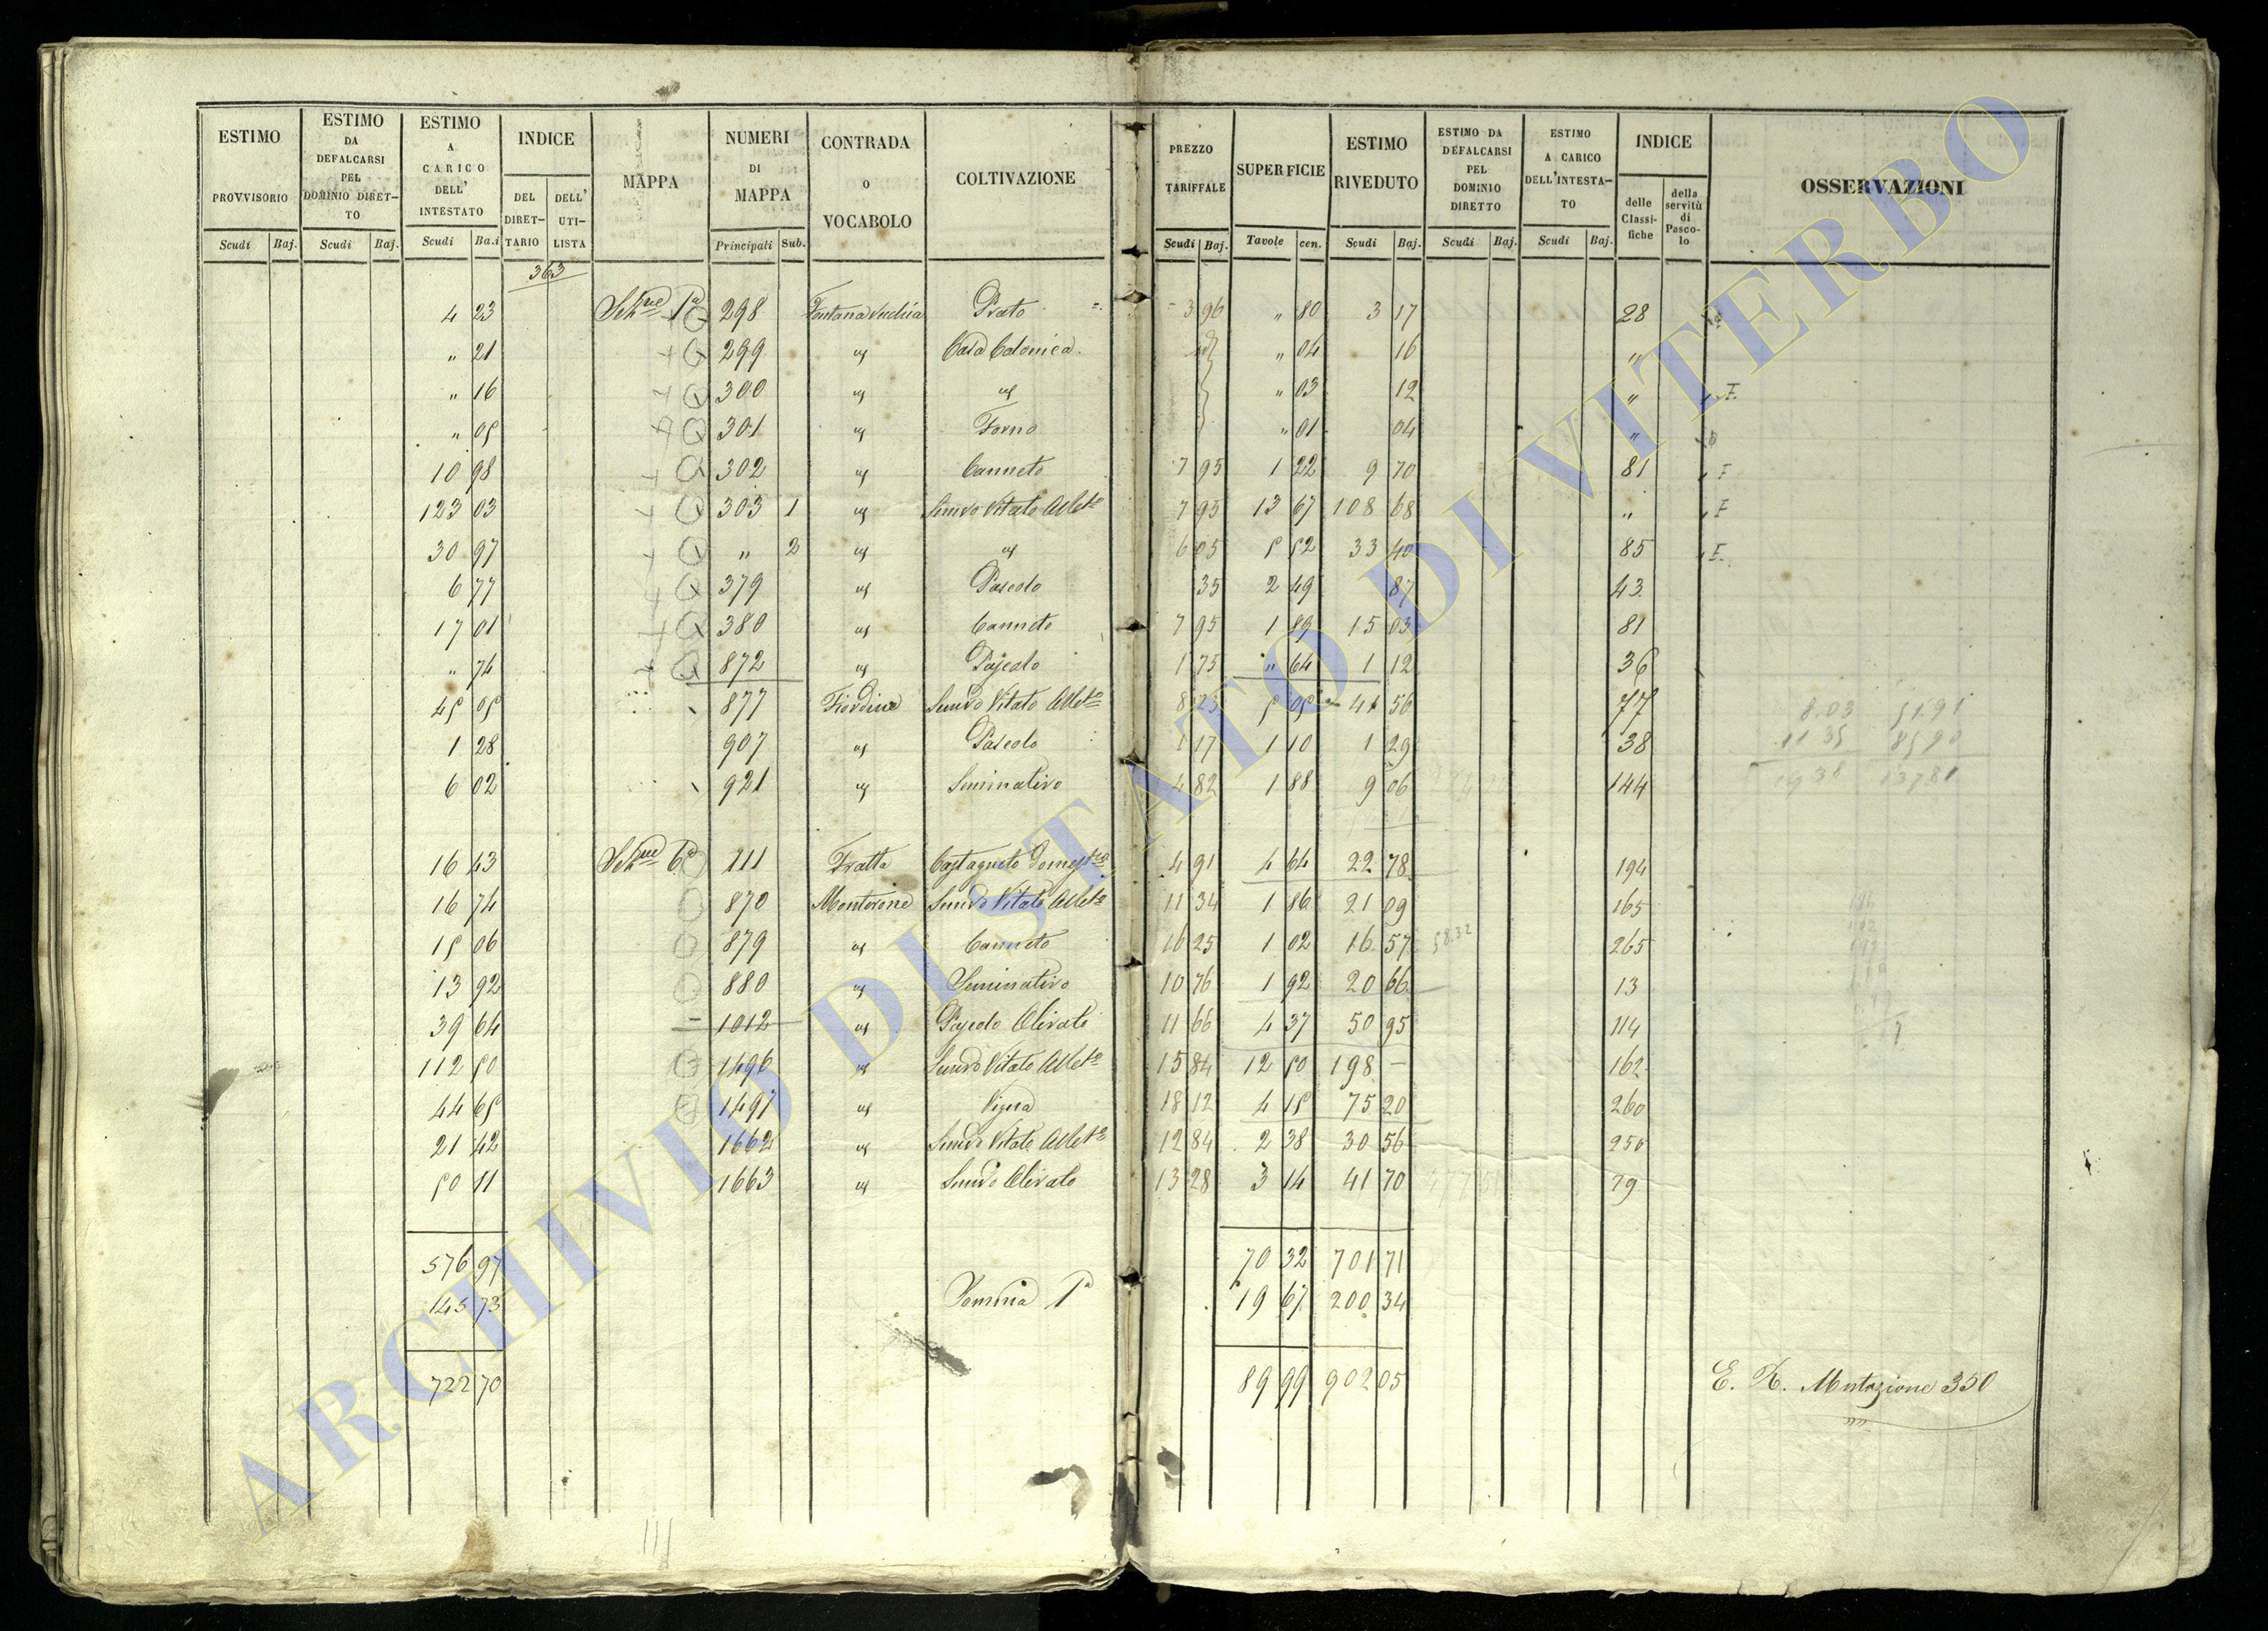 ESTIMO PROVVISORIO
Scudi Baj.
ESTIMO DA DEFALCARSI PEL DOMINIO DIRET-TO
Scudi Baj.
ESTIMO A CARICO DELL' INTESTATO
Scudi Ba.i
INDICE
DEL DIRET-TARIO
DELL' UTI-LISTA
MAPPA
NUMERI DI MAPPA
Principali Sub.
CONTRADA O VOCABOLO
COLTIVAZIONE
PREZZO TARIFFALE
Scudi Baj.
SUPERFICIE
Tavole cen.
ESTIMO RIVEDUTO
Scudi Baj.
ESTIMO DA DEFALCARSI PEL DOMINIO DIRETTO
Scudi Baj.
ESTIMO A CARICO DELL'INTESTA-TO
Scudi Baj.
INDICE
delle Classi-fiche
della servitù di Pasco-lo
OSSERVAZIONI
363
4 23 298 Prato 3 96 " 80 3 17 28
" 21 299 " Casa Colonica " 04 16 "
" 16 300 " " " 03 12 "
" 05 301 " Forno " 01 04 "
10 98 302 " Canneto 7 95 1 22 9 70 81
123 03 303 1 " Semvo Vitato Albto 7 95 13 67 108 68 "
30 97 " 2 " " 6 05 5 52 33 40 85
6 77 379 " Pascolo 35 2 49 87 43
17 01 380 " Canneto 7 95 1 89 15 03 81
" 74 872 " Pascolo 1 75 " 64 1 12 36
45 05 877 Semvo Vitato Albto 8 23 5 05 41 56 77
1 28 907 " Pascolo 1 17 1 10 1 29 38
6 02 921 " Seminativo 4 82 1 88 9 06 144
16 43 111 Fratta Castagneto Domestco 4 91 4 64 22 78 194
16 74 870 Montorone Semvo Vitato Albto 11 34 1 86 21 09 165
15 06 879 " Canneto 16 25 1 02 16 57 265
13 92 880 " Seminativo 10 76 1 92 20 66 13
39 64 1012 " Pascolo Olivato 11 66 4 37 50 95 114
112 50 1496 " Semvo Vitato Albto 15 84 12 50 198 — 162
44 65 1497 " Vigna 18 12 4 15 75 20 260
21 42 1662 " Semvo Vitato Albto 12 84 2 38 30 56 250
50 11 1663 " Semvo Olivato 13 28 3 14 41 70 79
576 97 70 32 701 71
145 73 Somma 1a 19 67 200 34
722 70 89 99 902 05
E. R. Mutazione 350
ARCHIVIO DI STATO DI VITERBO